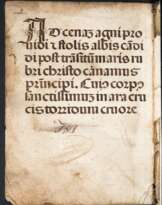 AD cenaz agni pro
uidi ⁊ stolis albis cādi
di post trāsitum maris ru
bri christo canamus
principi. Cuiꝰ corpꝰ
sanctissimuz in ara cru
cis torridum cruore